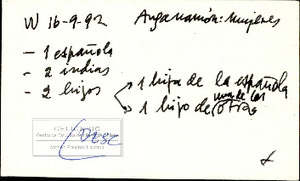 W 16-9-92 Angamarión: Mujeres
- 1 española
- 2 indias
- 2 hijos
1 hija de la española
1 hijo de una de las otras
CSIC